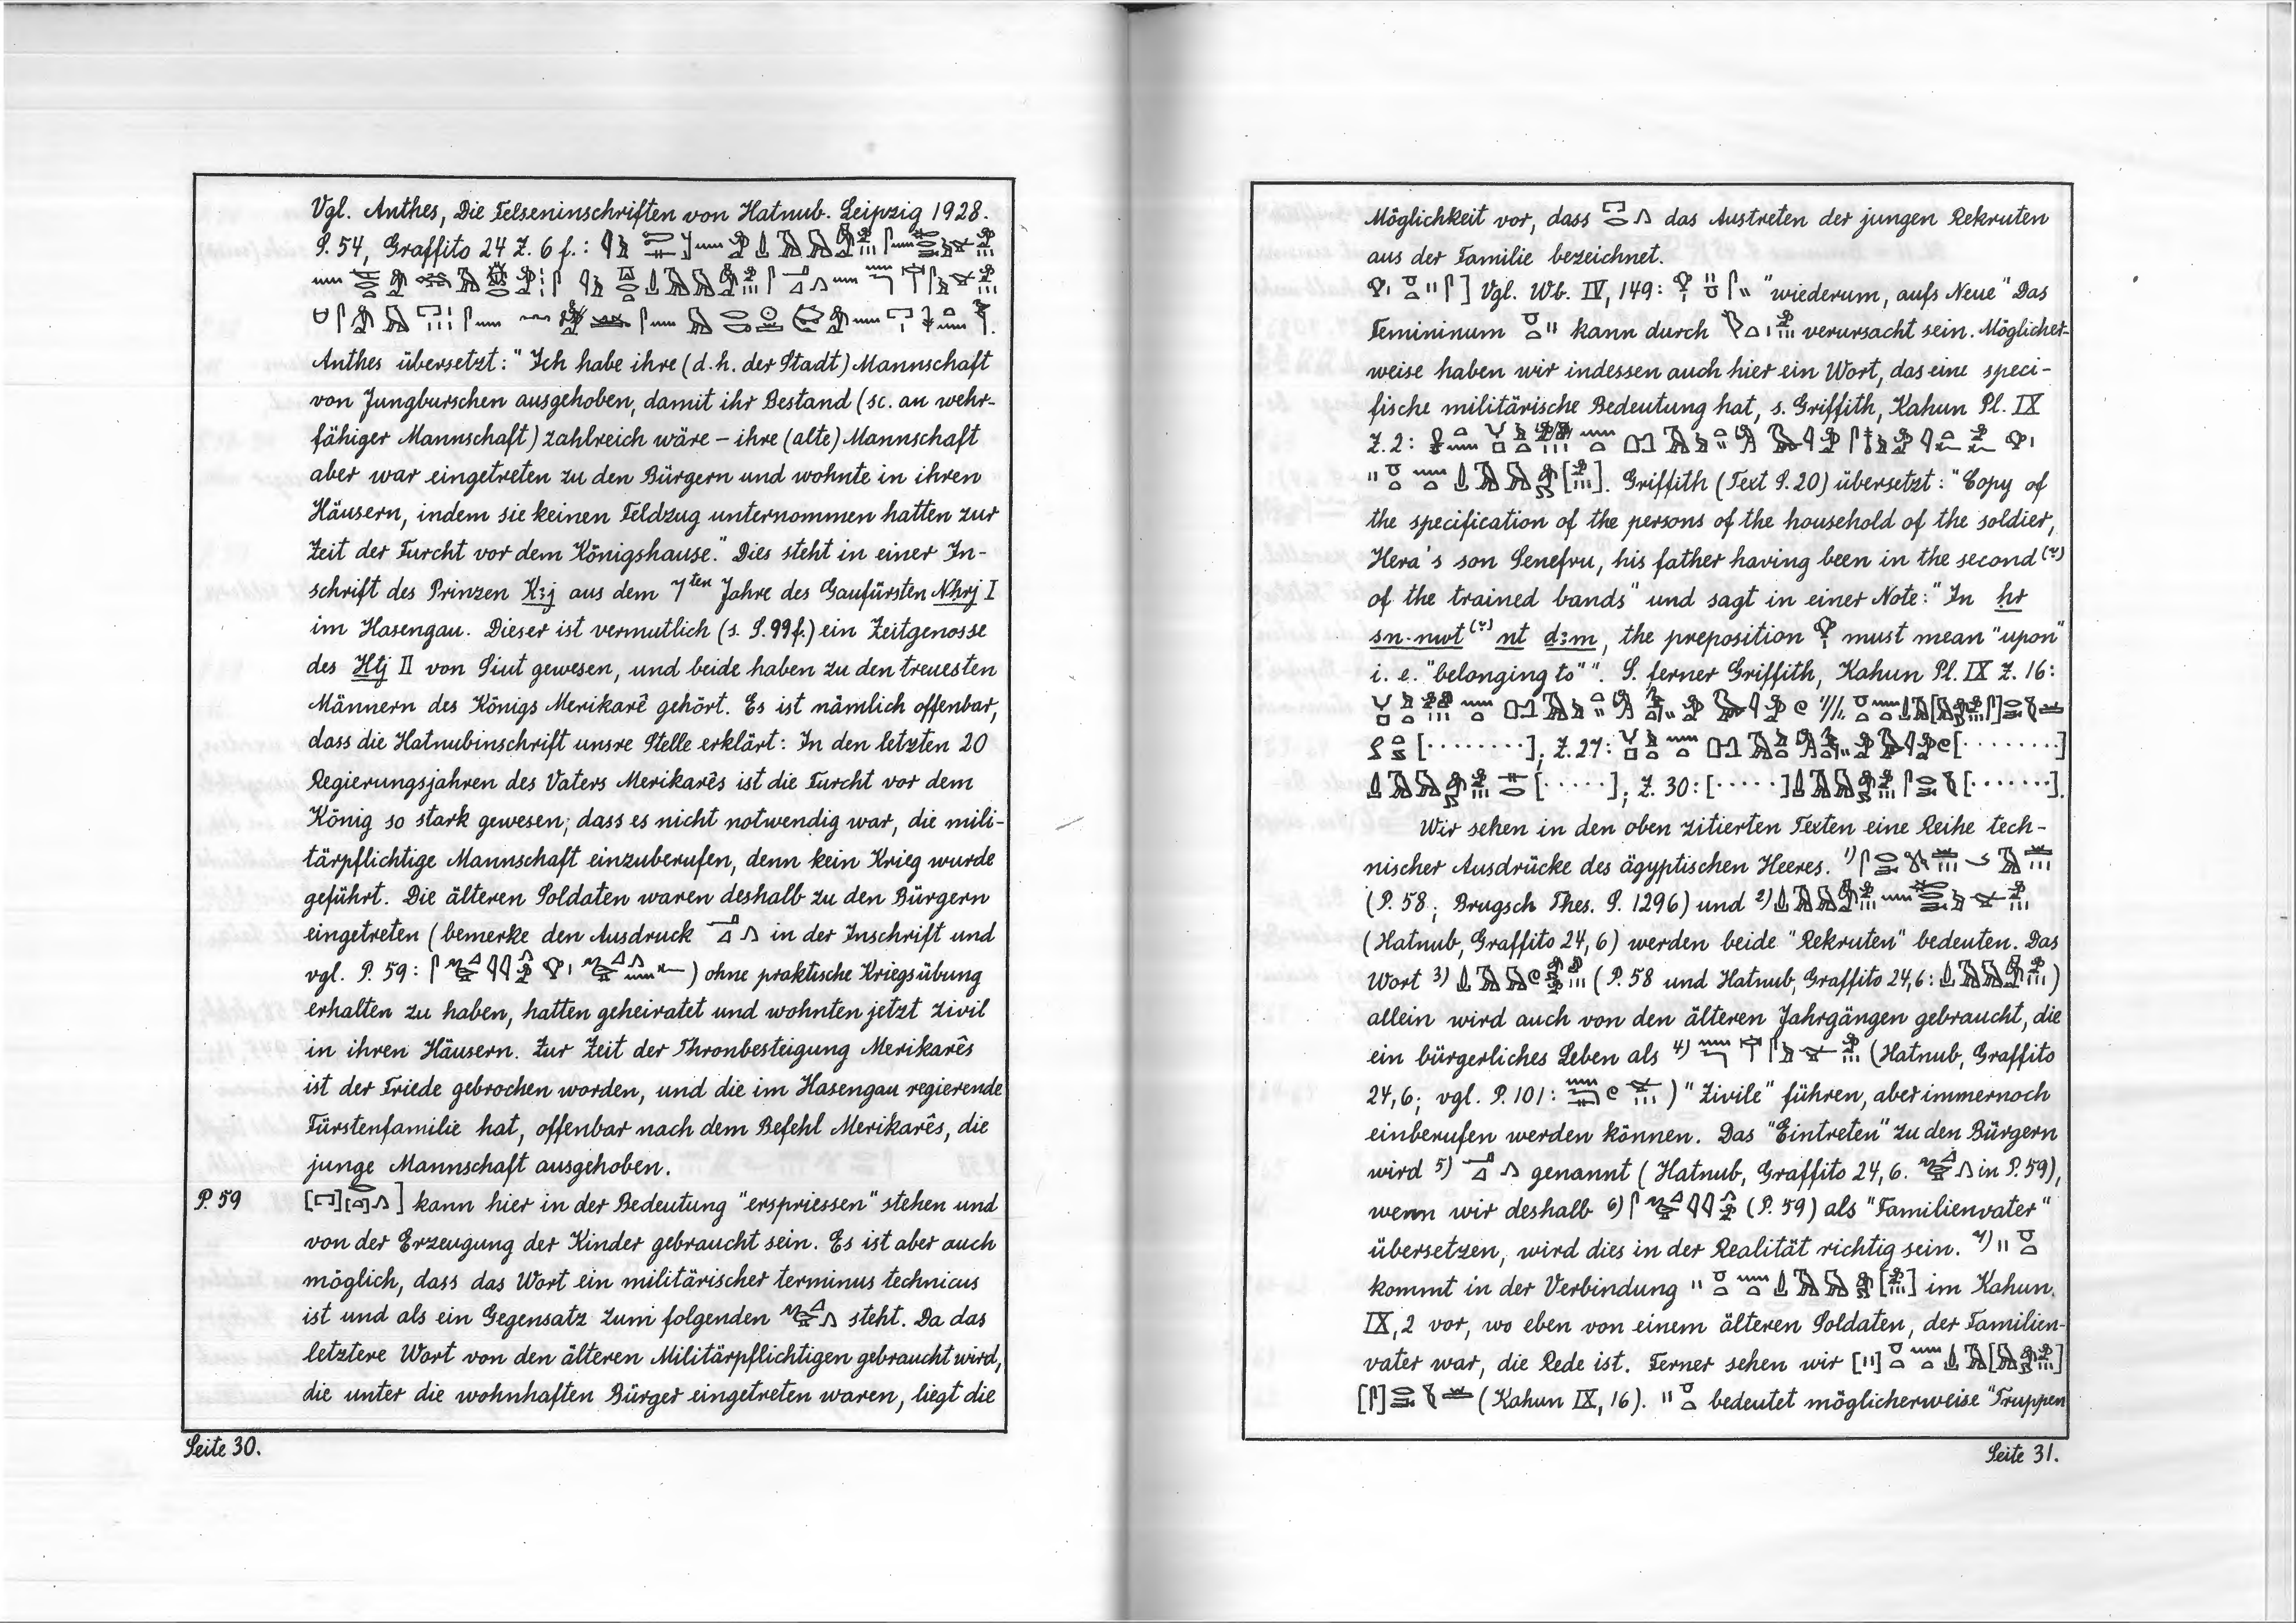 Vgl. Anthes, Die Felseninschriften von Hatnub. Leipzig 1928.
S. 54, Graffito 24 Z. 6 f.:
Anthes übersetzt: "Ich habe ihre (d.h. der Stadt) Mannschaft
von Jungburschen ausgehoben, damit ihr Bestand (sc. an wehr-
fähiger Mannschaft) zahlreich wäre – ihre (alte) Mannschaft
aber war eingetreten zu den Bürgern und wohnte in ihren
Häusern, indem sie keinen Feldzug unternommen hatten zur
Zeit der Furcht vor dem Königshause." Dies steht in einer In-
schrift des Prinzen K3j aus dem 7ten Jahre des Gaufürsten Nhrj I
im Hasengau. Dieser ist vermutlich (s. S. 99 f.) ein Zeitgenosse
des Htj II von Siut gewesen, und beide haben zu den treuesten
Männern des Königs Merikarê gehört. Es ist nämlich offenbar,
dass die Hatnubinschrift unsre Stelle erklärt: In den letzten 20
Regierungsjahren des Vaters Merikarês ist die Furcht vor dem
König so stark gewesen, dass es nicht notwendig war, die mili-
tärpflichtige Mannschaft einzuberufen, denn kein Krieg wurde
geführt. Die älteren Soldaten waren deshalb zu den Bürgern
eingetreten (bemerke den Ausdruck in der Inschrift und
vgl. P. 59: ) ohne praktische Kriegsübung
erhalten zu haben, hatten geheiratet und wohnten jetzt zivil
in ihren Häusern. Zur Zeit der Thronbesteigung Merikarês
ist der Friede gebrochen worden, und die im Hasengau regierende
Fürstenfamilie hat, offenbar nach dem Befehl Merikarês, die
junge Mannschaft ausgehoben.
P. 59 ] kann hier in der Bedeutung "erspriessen" stehen und
von der Erzeugung der Kinder gebraucht sein. Es ist aber auch
möglich, dass das Wort ein militärischer terminus technicus
ist und als ein Gegensatz zum folgenden steht. Da das
letztere Wort von den älteren Militärpflichtigen gebraucht wird,
die unter die wohnhaften Bürger eingetreten waren, liegt die
Seite 30.
Möglichkeit vor, dass das Austreten der jungen Rekruten
aus der Familie bezeichnet.
] Vgl. Wb. IV, 149: "wiederum, aufs Neue" Das
Femininum kann durch verursacht sein. Möglicher-
weise haben wir indessen auch hier ein Wort, das eine speci-
fische militärische Bedeutung hat, s. Griffith, Kahun Pl. IX
Z. 2:
. Griffith (Text S. 20) übersetzt: "Copy of
the specification of the persons of the household of the soldier,
Hera's son Senefru, his father having been in the second (?)
of the trained bands" und sagt in einer Note: "In hr
sn·nwt (?) nt d3m, the preposition must mean "upon"
i. e. "belonging to"". S. ferner Griffith, Kahun Pl. IX Z. 16:
[·········]; Z. 27: [·········]
[······]; Z. 30: [······] [·······].
Wir sehen in den oben zitierten Texten eine Reihe tech-
nischer Ausdrücke des ägyptischen Heeres. 1)
(P. 58; Brugsch Thes. S. 1296) und 2)
(Hatnub, Graffito 24, 6) werden beide "Rekruten" bedeuten. Das
Wort 3) (P. 58 und Hatnub, Graffito 24,6: )
allein wird auch von den älteren Jahrgängen gebraucht, die
ein bürgerliches Leben als 4) (Hatnub, Graffito
24,6; vgl. P. 101: ) "Zivile" führen, aber immernoch
einberufen werden können. Das "Eintreten" zu den Bürgern
wird 5) genannt (Hatnub, Graffito 24,6. in P. 59),
wenn wir deshalb 6) (P. 59) als "Familienvater"
übersetzen, wird dies in der Realität richtig sein. 7)
kommt in der Verbindung im Kahun,
IX, 2 vor, wo eben von einem älteren Soldaten, der Familien-
vater war, die Rede ist. Ferner sehen wir
(Kahun IX, 16). bedeutet möglicherweise "Truppen
Seite 31.